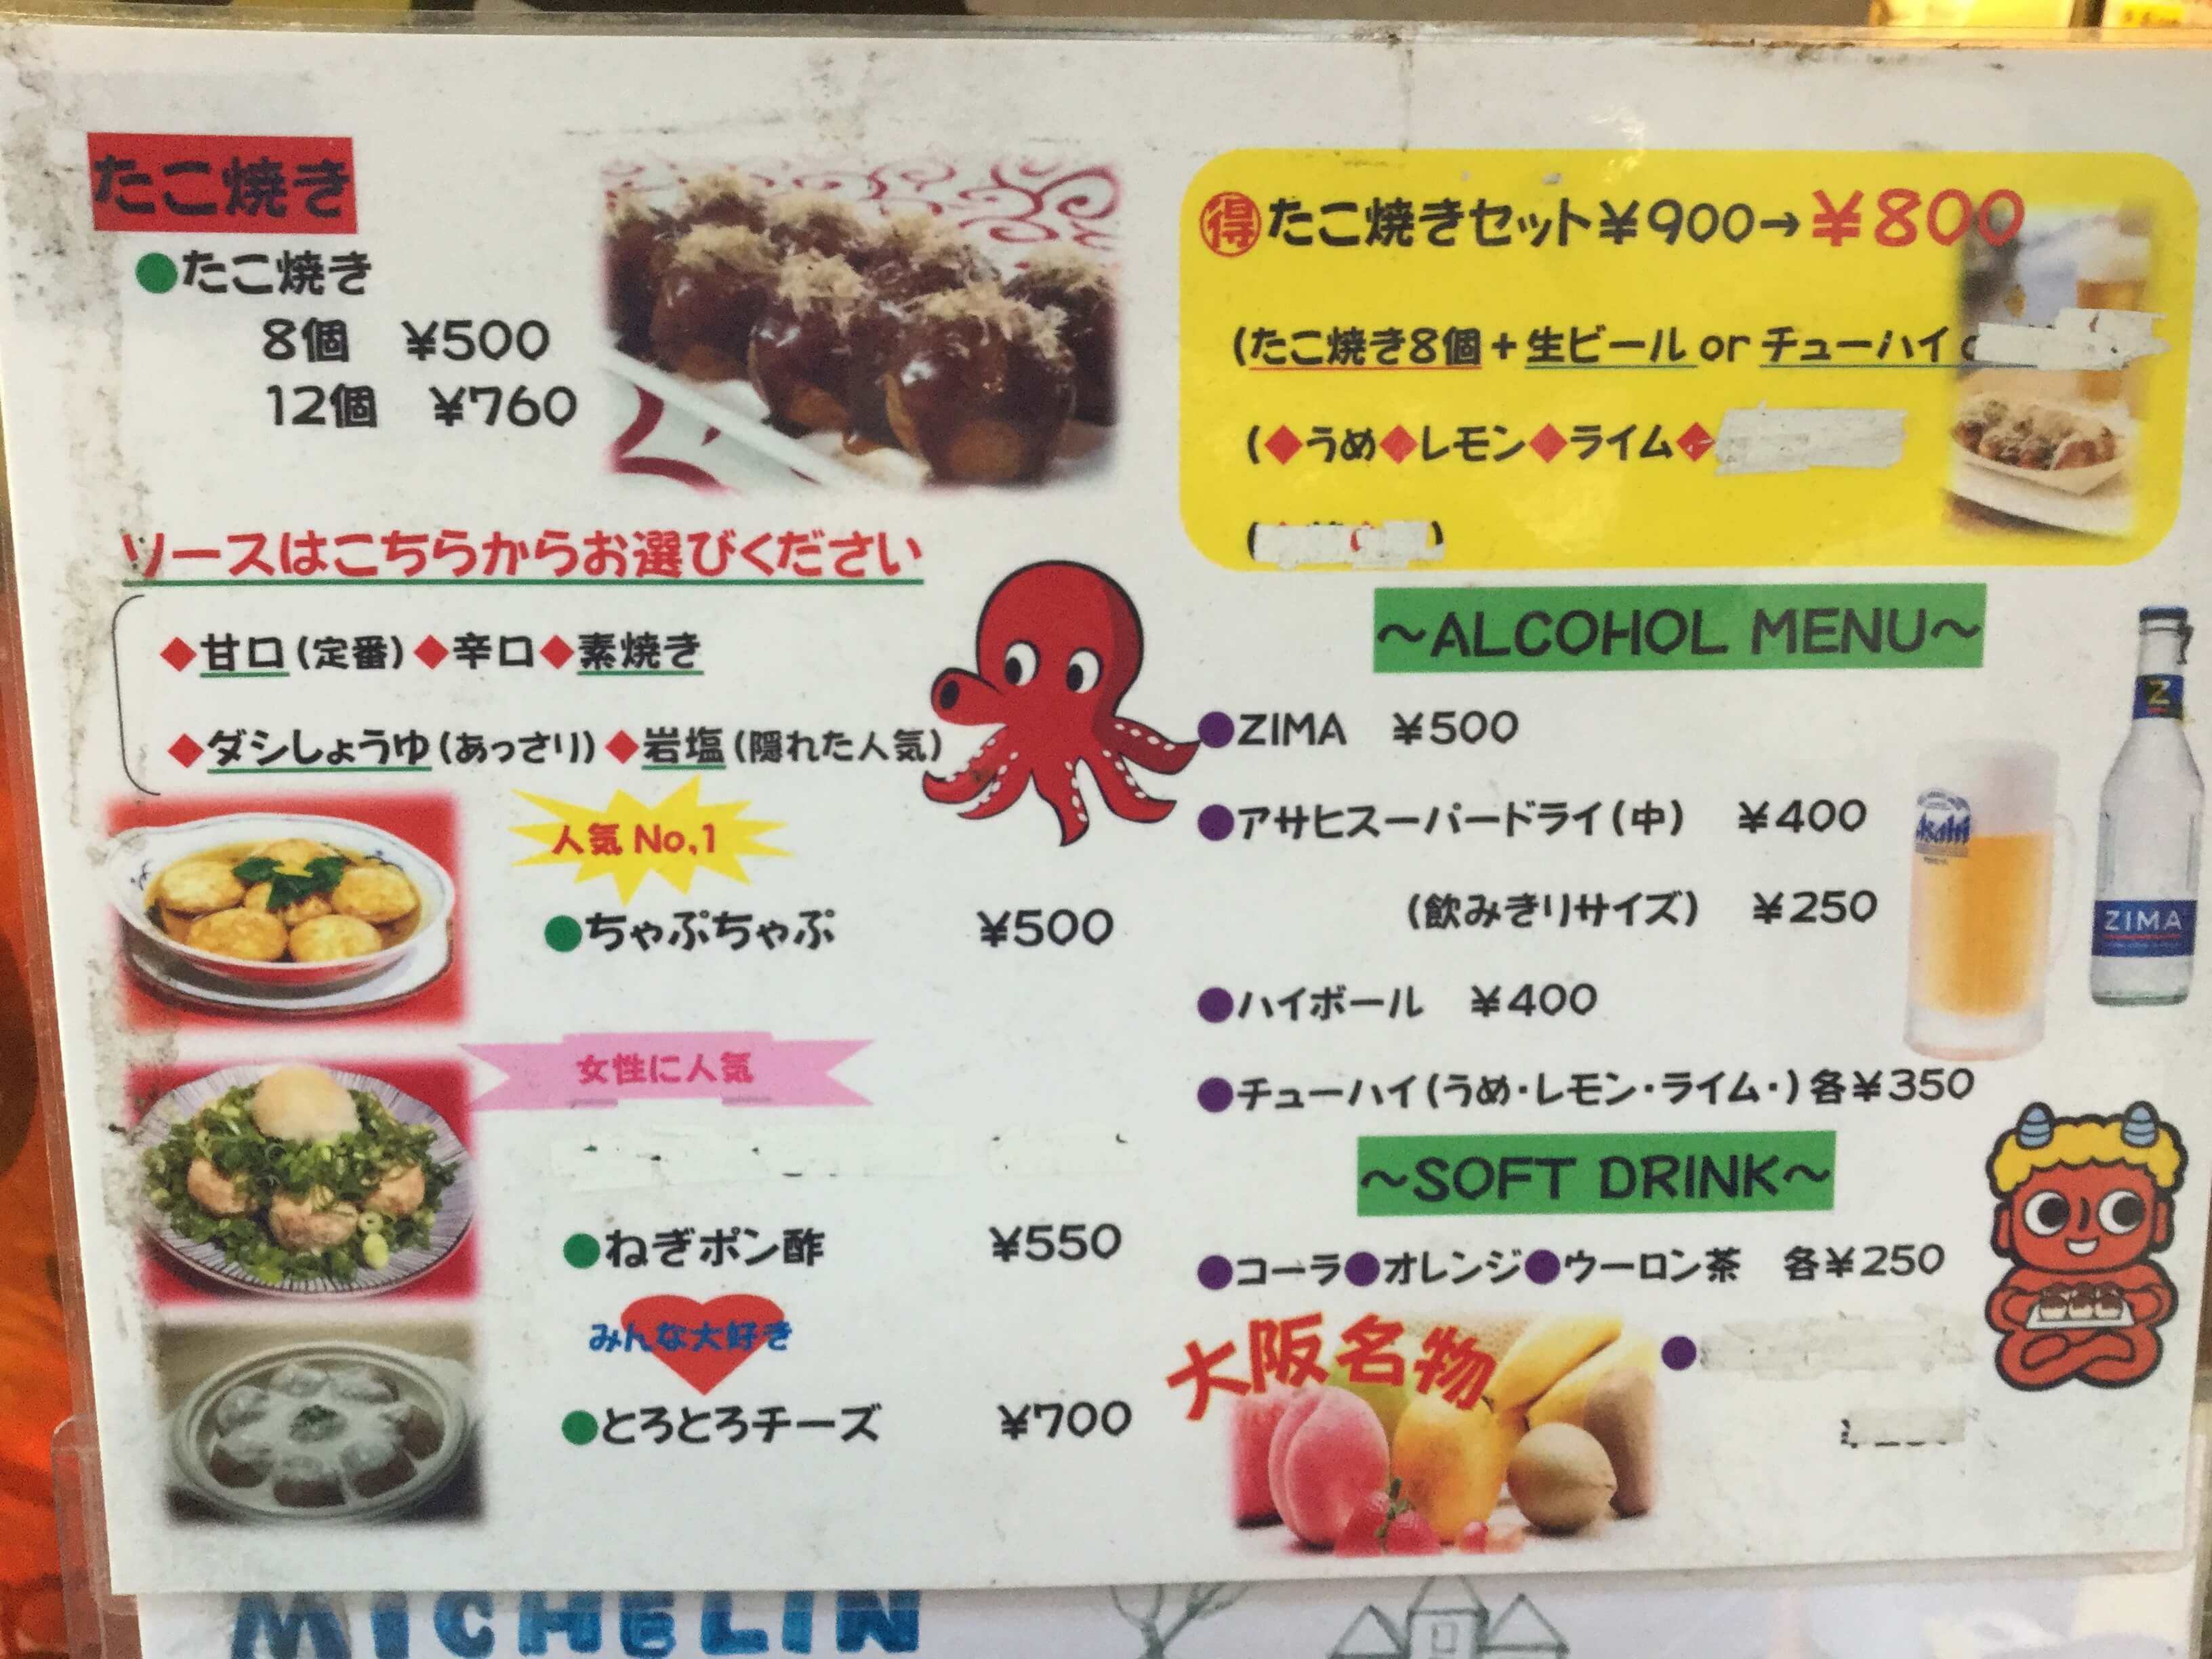 たこ焼き
●たこ焼き
8個 ¥500
12個 ¥760
ソースはこちらからお選びください
◆甘口(定番)◆辛口◆素焼き
◆ダシしょうゆ(あっさり)◆岩塩(隠れた人気)
人気No,1
●ちゃぷちゃぷ ¥500
女性に人気
●ねぎポン酢 ¥550
みんな大好き
●とろとろチーズ ¥700
得たこ焼きセット¥900→¥800
(たこ焼き8個+生ビール or チューハイ
(◆うめ◆レモン◆ライム◆
~ALCOHOL MENU~
●ZIMA ¥500
●アサヒスーパードライ(中) ¥400
(飲みきりサイズ) ¥250
●ハイボール ¥400
●チューハイ(うめ・レモン・ライム・)各¥350
Asahi
Z
ZIMA
~SOFT DRINK~
●コーラ●オレンジ●ウーロン茶 各¥250
大阪名物
●
MICHELIN